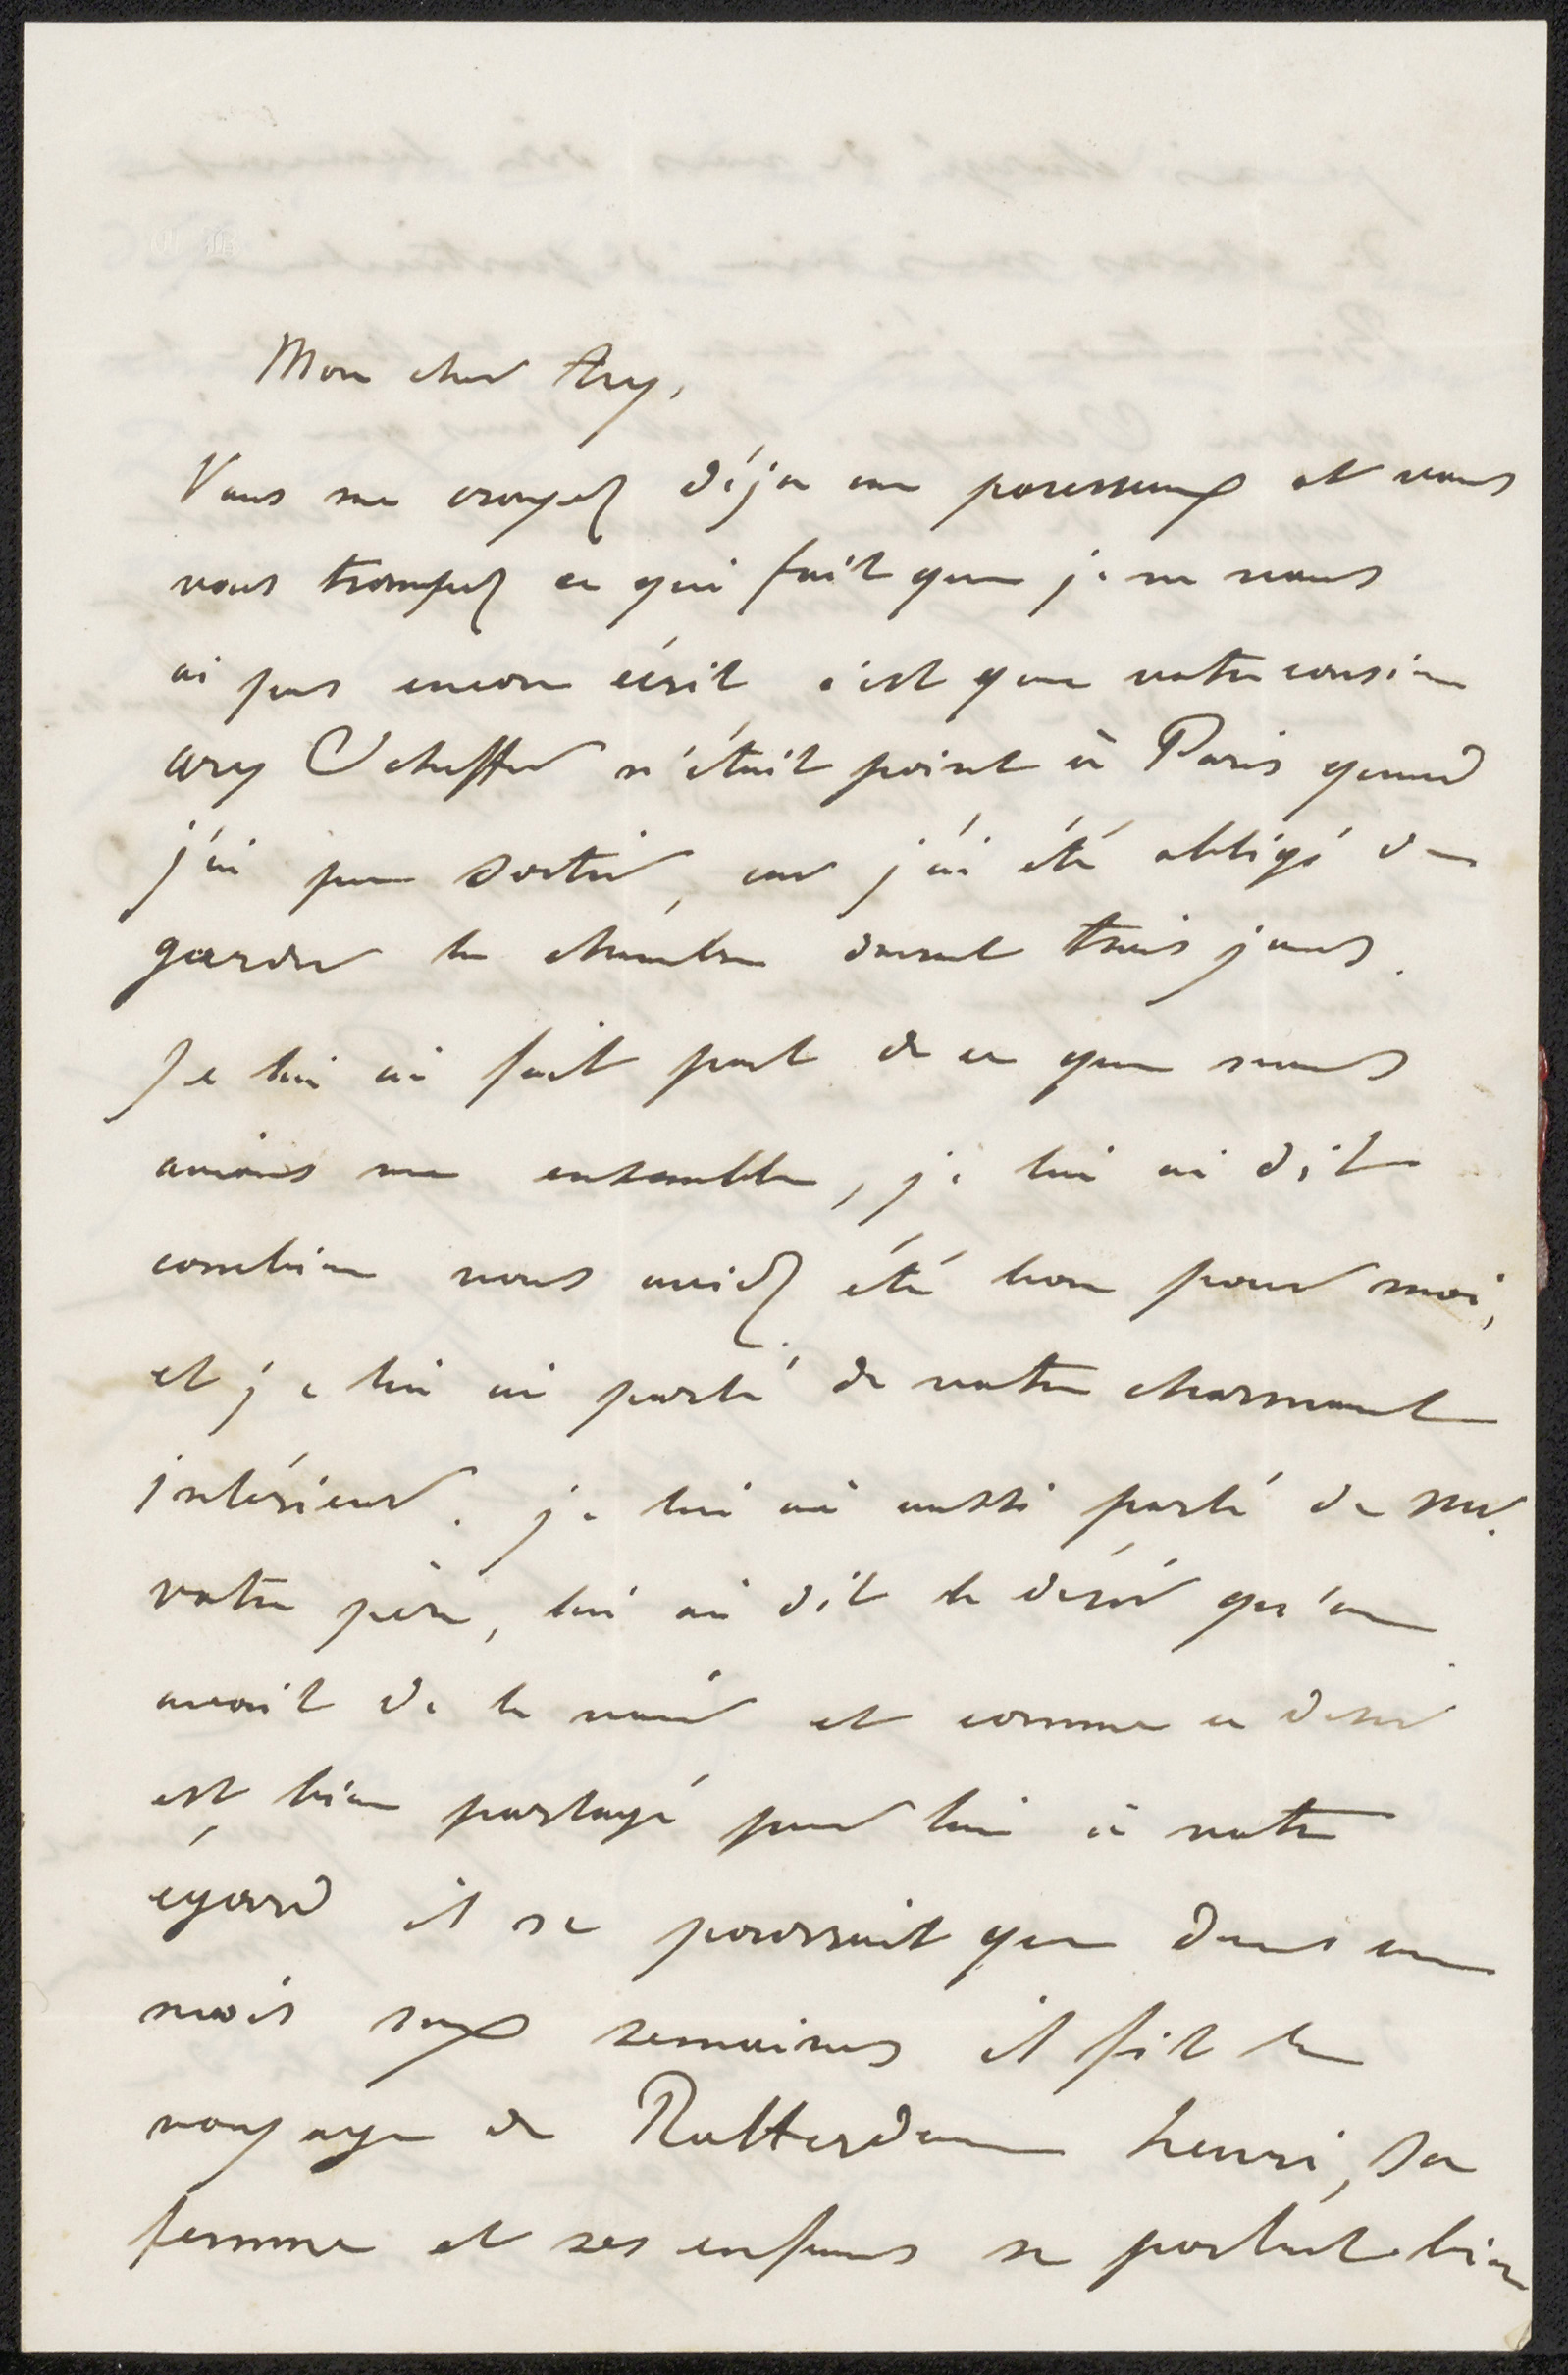 Mon cher Ary,
Vous me croyez déja un paresseux et vous
vous trompez ce qui fait que je ne vous
ai pas encore écrit c'est que votre cousin
ary Scheffer n'était point à Paris quand
j'ai pu sortir, car j'ai été obligé de
garder la chambre durant trois jours.
Je lui ai fait part de ce que nous
avions vu ensemble, je lui ai dit
combien vous aviez été bon pour moi,
et je lui ai parlé de votre charmant
intérieur. je lui ai aussi parlé de Mr.
votre père, lui ai dit le désir qu'on
avait de le voir et comme ce desir
est bien partagé par lui à votre
égard il se pourrait que dans un
mois six semaines il fit le
voyage de Rotterdam henri, sa
femme et ses enfans se portent bien